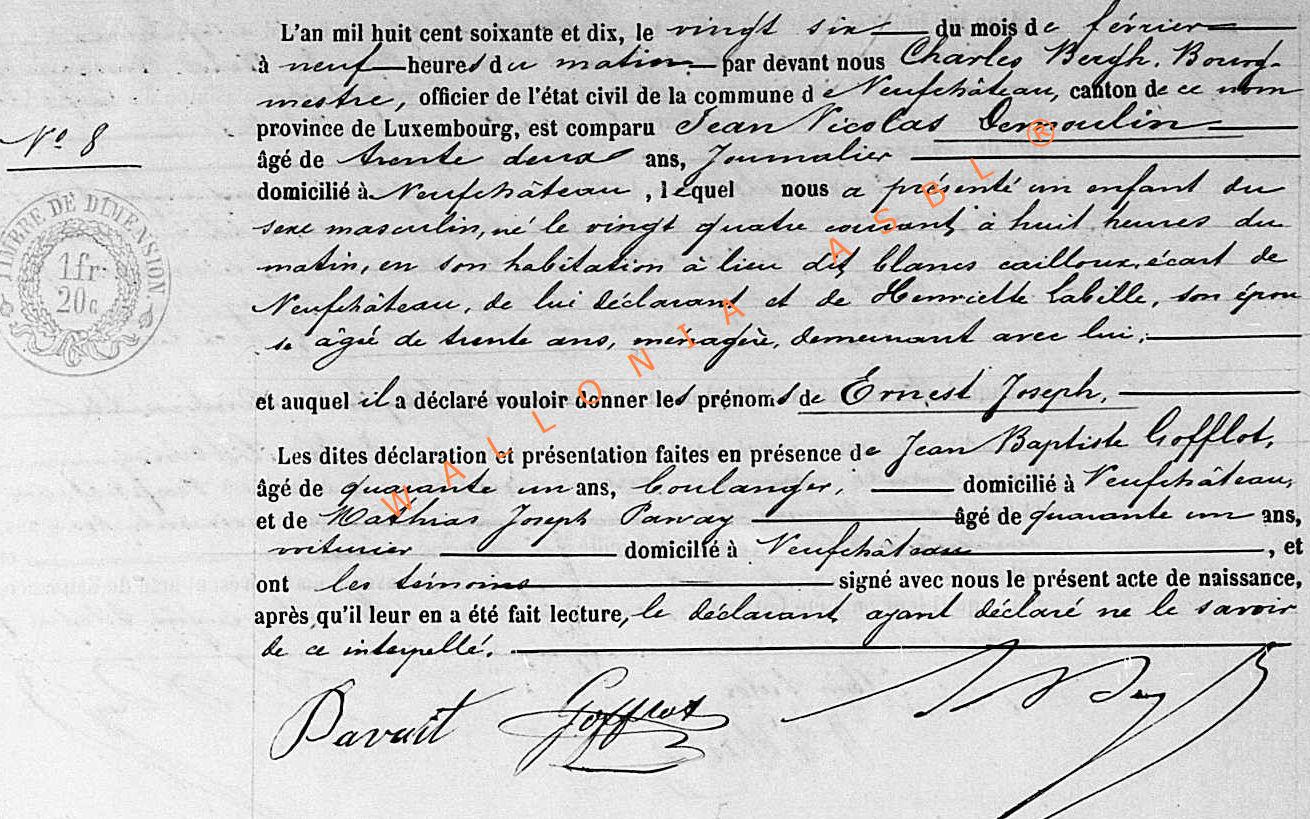 L'an mil huit cent soixante et dix, le vingt six du mois de février
à neuf heures du matin par devant nous Charles Bergh, Bourg-
mestre, officier de l'état civil de la commune de Neufchâteau, canton de ce nom
province de Luxembourg, est comparu Jean Nicolas Demoulin
N° 8
âgé de trente deux ans, Journalier
domicilié à Neufchâteau, lequel nous a présenté un enfant du
sexe masculin, né le vingt quatre courant, à huit heures du
matin, en son habitation à lieu dit blancs cailloux, écart de
Neufchâteau, de lui déclarant et de Henriette Labille, son épou
se âgée de trente ans, ménagère, demeurant avec lui;
et auquel il a déclaré vouloir donner les prénoms de Ernest Joseph,
Les dites déclaration et présentation faites en présence de Jean Baptiste Gofflot,
âgé de quarante un ans, boulanger, domicilié à Neufchâteau,
et de Mathias Joseph âgé de quarante un ans,
voiturier domicilié à Neufchâteau, et
ont les témoins signé avec nous le présent acte de naissance,
après qu'il leur en a été fait lecture, le déclarant ayant déclaré ne le savoir
de ce interpellé.
Gofflot
TIMBRE DE DIMENSION.
1 fr.
20 c
WALLONIA ASBL ®